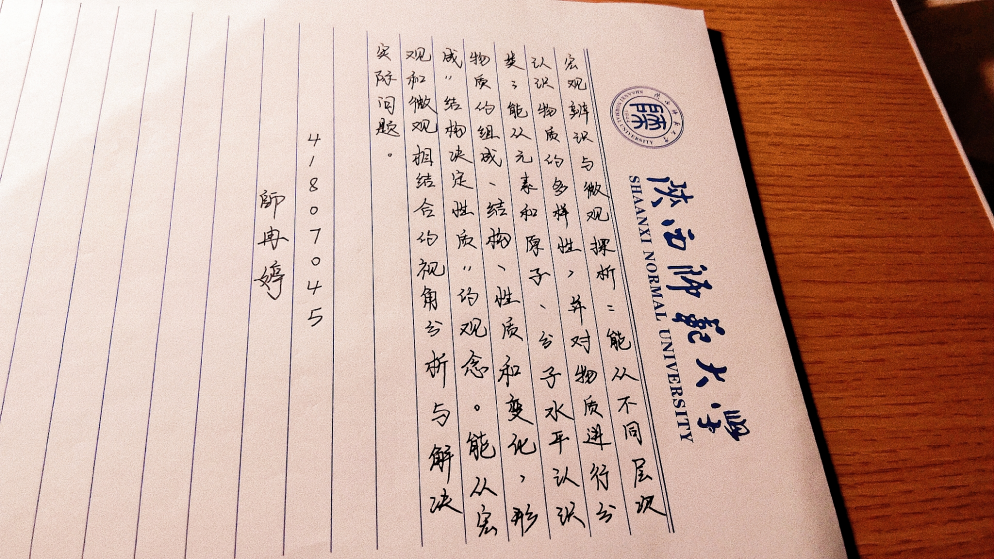 陕西师范大学
SHAANXI NORMAL UNIVERSITY
宏观辨识与微观探析：能从不同层次
认识物质的多样性，并对物质进行分
类；能从元素和原子、分子水平认识
物质的组成、结构、性质和变化，形
成“结构决定性质”的观念。能从宏
观和微观相结合的视角分析与解决
实际问题。
41807045
師冉婷